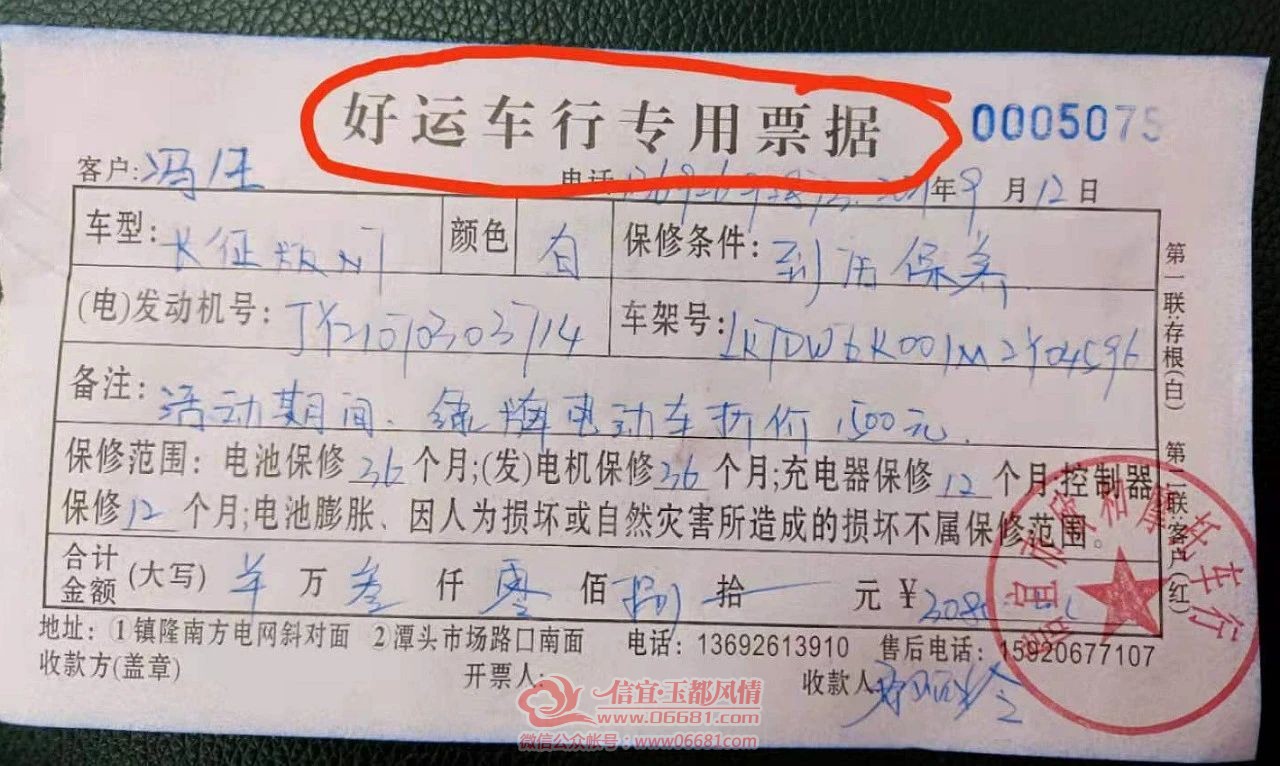 好运车行专用票据 0005075
客户: 冯 电话: 年9月12日
车型: 长征 颜色 白 保修条件: 到店保养
(电)发动机号: JY21070303714 车架号: LKTDW6K001M2Y04596
备注: 活动期间、绿牌电动车折价1500元.
保修范围: 电池保修36个月;(发)电机保修36个月;充电器保修12个月;控制器
保修12个月;电池膨胀、因人为损坏或自然灾害所造成的损坏不属保修范围。
合计金额 (大写) 万叁仟零佰捌拾一元 ¥308
地址: ①镇隆南方电网斜对面 ②潭头市场路口南面 电话: 13692613910 售后电话: 15920677107
收款方(盖章) 开票人: 收款人
第一联:存根(白) 第二联:客户(红)
信宜市 和摩托车行
信宜·玉都风情
www.06681.com
微信公众帐号: www06681com